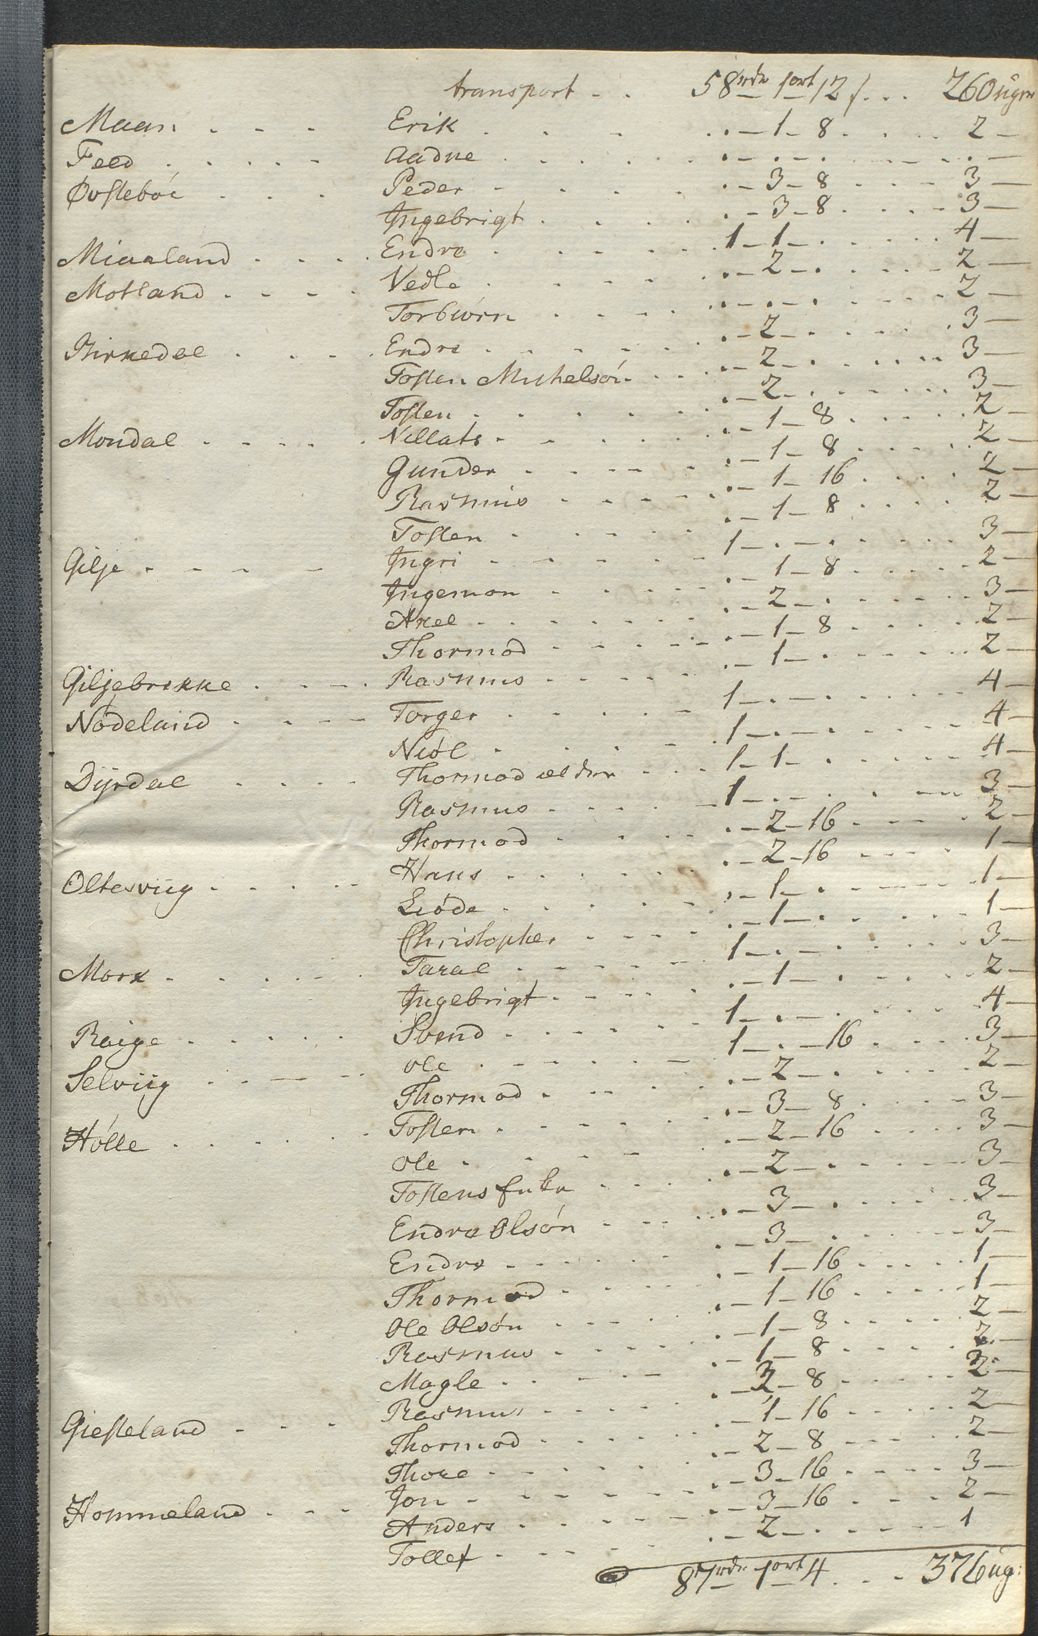 transport - - 58 rdr 1 ort 12 s. . . 260 ugr
Maan - - - Erik - - - . - 1 - 8 . . . 2 -
Feed - - - Aadne - - - . - . - . - - - . -
Øvstebøe - - - Peder - - - . - 3 - 8 . . . 3 -
Ingebrigt - - - . - 3 - 8 . . . 3 -
Miaaland - - - Endre - - - 1 - 1 - . . . 4 -
Motland - - - Vedle - - - . - 2 - . . . 2 -
Torbiørn - - - . - . - . . . 2 -
Birkedal - - - Endre - - - . - 2 - . . . 3 -
Tosten Michelsøn - - - . - 2 - . . . 3 -
Tosten - - - . - 2 - . . . 3 -
Mondal - - - Villats - - - . - 1 - 8 . . . 2 -
Gunder - - - . - 1 - 8 . . . 2 -
Rasmus - - - . - 1 - 16 . . . 2 -
Tosten - - - . - 1 - 8 . . . 2 -
Gilje - - - Ingri - - - 1 - . - . . . 3 -
Ingemon - - - . - 1 - 8 . . . 2 -
Axel - - - . - 2 - . . . 3 -
Thormod - - - . - 1 - 8 . . . 2 -
Giljebrekke - - - Rasmus - - - . - 1 - . . . 2 -
Nødeland - - - Torger - - - 1 - . - . . . 4 -
Niøl - - - 1 - . - . . . 4 -
Dÿrdal - - - Thormod ælder - - - 1 - 1 - . . . 4 -
Rasmus - - - 1 - . - . . . 3 -
Thormod - - - . - 2 - 16 . . . 2 -
Oltesviig - - - Hans - - - . - 2 - 16 . . . 1 -
Liøde - - - . - 1 - . . . 1 -
Christopher - - - . - 1 - . . . 1 -
Mork - - - Taral - - - 1 - . - . . . 3 -
Ingebrigt - - - . - 1 - . . . 2 -
Raige - - - Svend - - - 1 - . - . . . 4 -
Selviig - - - Ole - - - 1 - . - 16 . . . 3 -
Thormod - - - . - 2 - . . . 2 -
Hølle - - - Tosten - - - . - 3 - 8 . . . 3 -
Ole - - - . - 2 - 16 . . . 3 -
Tostens - - - . - 2 - . . . 3 -
Endre Olsøn - - - . - 3 - . . . 3 -
Endre - - - . - 3 - . . . 3 -
Thormod - - - . - 1 - 16 . . . 1 -
Ole Olsøn - - - . - 1 - 16 . . . 1 -
Rasmus - - - . - 1 - 8 . . . 2 -
Magle - - - . - 1 - 8 . . . 2 -
Giesteland - - - Rasmus - - - . - 8 . . . 2 -
Thormod - - - . - 1 - 16 . . . 2 -
Thore - - - . - 2 - 8 . . . 2 -
Hommeland - - - Jon - - - . - 3 - 16 . . . 3 -
Anders - - - . - 3 - 16 . . . 2 -
Tollef - - - . - 2 - . . . 1
87 rdr 1 ort 4 . . . 376 ug: